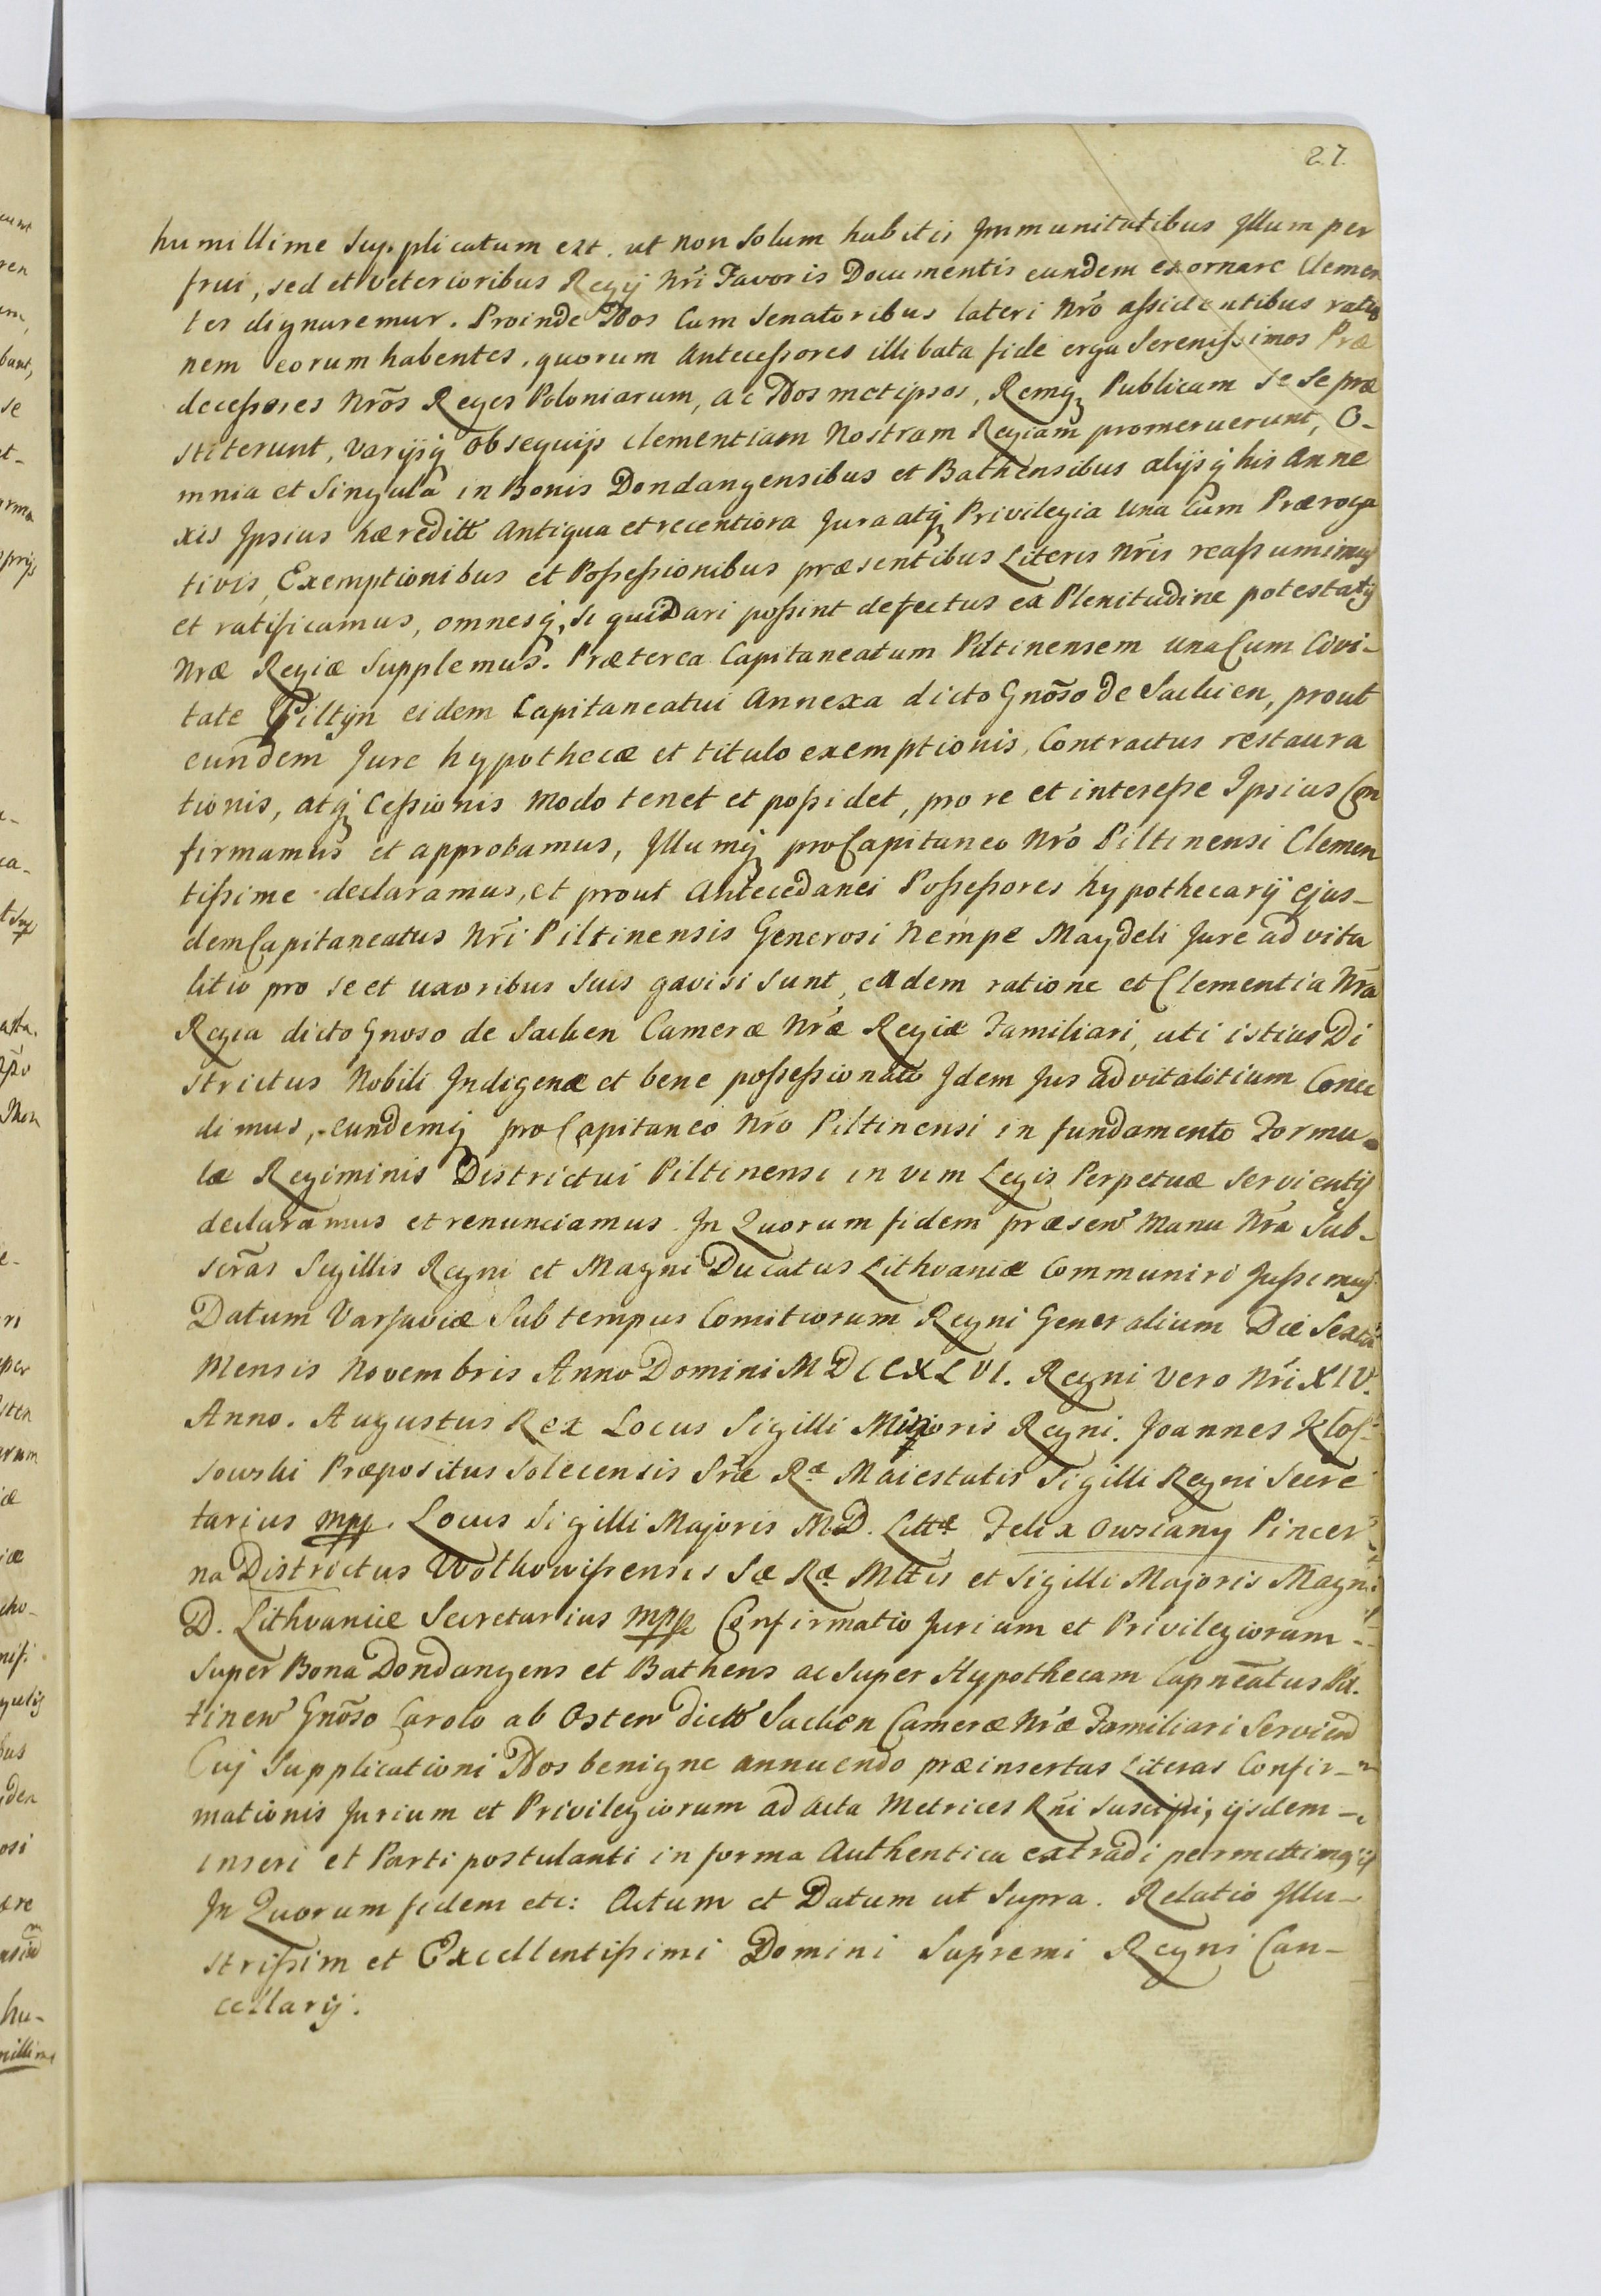 27.
humillime supplicatum est. ut non solum habitis Immunitatibus Illum per
frui, sed et Veterioribus Regij Nr̃i Favoris Documentis eundem exornare Clemen
ter dignaremur. Proinde Nos Cum Senatoribus lateri Nr̃o assidentibus ratio
nem eorum habentes, quorum Antecessores illibata fide erga Serenissimos Præ
decessores Nr̃os Reges Poloniarum, ac Nos metipsos, Remq, Publicam se se præ
stiterunt, varijsq obsequijs clementiam Nostram Regiam promeruerunt, O-
mnia et Singula in Bonis Dondangensibus et Bathensibus alijsq his Anne
xis Ipsius hæreditt Antiqua et recentiora Jura atq Privilegia Una Cum Præroga
tivis, Exemptionibus et Possessionibus præsentibus Literis Nr̃is reassumimus
et ratificamus, omnesq, si qui Dari possint defectus ex Plenitudine potestatis
Nræ Regiæ Supplemus. Præterea Capitaneatum Piltinensem una Cum Civi-
tate Piltyn eidem Capitaneatui Annexa dicto Gnõso de Sacken, prout
eundem Jure hypothecæ et titulo exemptionis, Contractus restaura
tionis, atq Cessionis modo tenet et possidet, pro re et interesse Ipsius Con
firmamus et approbamus, Illumq pro Capitaneo Nr̃o Piltinensi Clemen
tissime declaramus, et prout Antecedanei Possessores hypothecarij ejus-
dem Capitaneatus Nr̃i Piltinensis Generosi Nempe Maydeli Jure ad vita
litio pro se et uxoribus suis gavisi sunt, eadem ratione et Clementia Nr̃a
Regia dicto Gnoso de Sacken Cameræ Nr̃æ Regiæ Familiari, uti istius Di
strictus Nobili Indigenæ et bene possessionato Idem Jus ad vitalitium Conce
dimus, eundemq pro Capitaneo Nr̃o Piltinensi in fundamento Formu-
læ Regiminis Districtui Piltinensi in vim Legis Perpetuæ servientis
declaramus et renunciamus. In Quorum fidem præsen' Manu Nr̃a Sub-
scr̃as Sigillis Regni et Magni Ducatus Lithvaniæ Communiri Jussimus.
Datum Varsaviæ Sub tempus Comitiorum Regni Generalium Die Sexta
Mensis Novembris Anno Domini MDCCXLVI. Regni Vero Nr̃i XIV.
Anno. Augustus Rex Locus Sigilli Minoris Regni. Joannes Klos-
sowski Præpositus Solecensis Sr̃æ Ræ Maiestatis Sigilli Regni Secre
tarius mpp. Locus Sigilli Majoris M.D. Littæ Felix Owsiany Pincer
na Districtus Wolkowissensis Sæ Ræ Mttis et Sigilli Majoris Magni
D. Lithvaniæ Secretarius mpp Confirmatio Jurium et Privilegiorum -
Super Bona Dondangens et Bathens ac Super Hypothecam Capneãtus Pil.
tinen' Gnõso Carolo ab Osten' dictt Sacken Cameræ Nr̃æ Familiari Serviend
Cuj Supplicationi Nos benigne annuendo præinsertas Literas Confir-
mationis Jurium et Privilegiorum ad Acta Metrices Rñi suscipi, ijsdem -
inseri et Parti postulanti in forma Authentica extradi permittimus
In Quorum fidem etc: Actum et Datum ut Supra. Relatio Illu-
strissim et Excellentissimi Domini Supremi Regni Can-
cellarij.